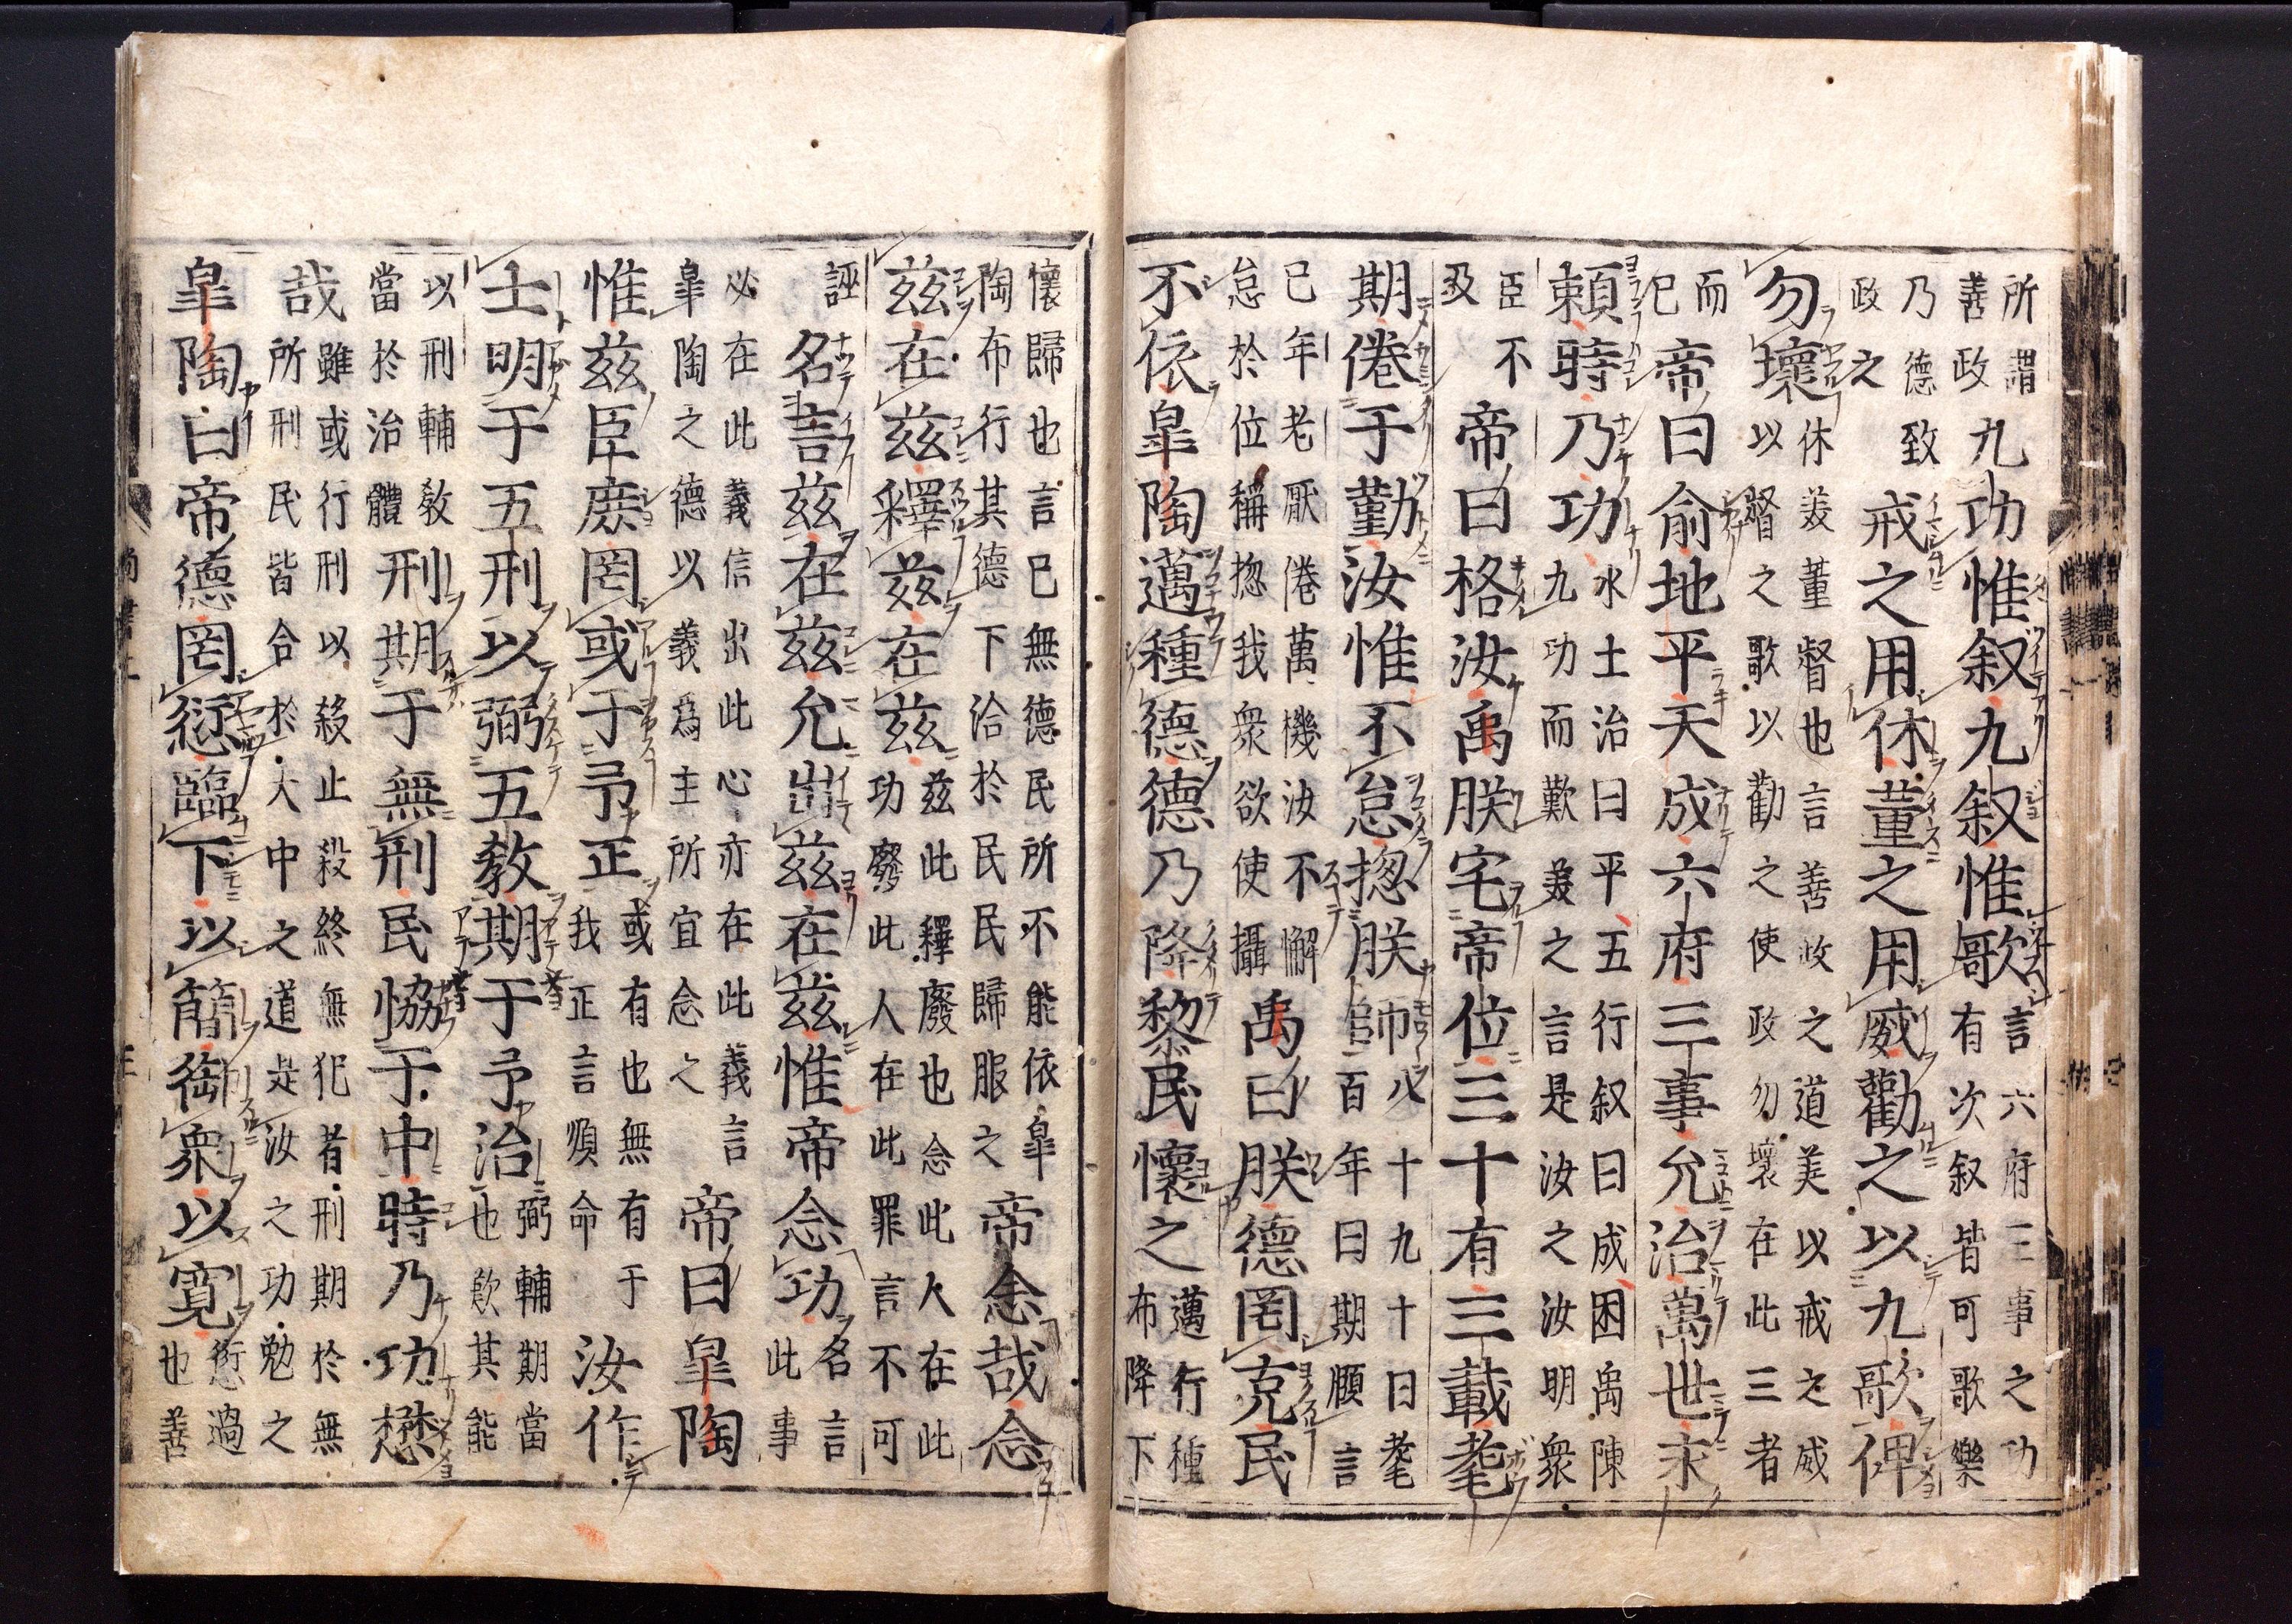 所謂
善政
九功惟叙九叙惟歌
言六府三事之功
有次叙皆可歌樂
乃德致
政之
戒之用休董之用威勸之以九歌俾
勿壞
休美董督也言善政之道美以戒之威
以督之歌以勸之使政勿壞在此三者
而
已
帝曰俞地平天成六府三事允治萬世永
頼時乃功
水土治曰平五行叙曰成因禹陳
九功而歎美之言是汝之汝明衆
臣不
及
帝曰格汝禹朕宅帝位三十有三載耄
期倦于勤汝惟不怠揔朕師
八十九十曰耄
百年曰期頤言
已年老厭倦萬機汝不懈
怠於位稱揔我衆欲使攝
禹曰朕德罔克民
不依皐陶邁種德德乃降黎民懷之
邁行種
布降下
懷歸也言已無德民所不能依皐
陶布行其德下洽於民民歸服之
帝念哉念
兹在兹釋兹在兹
兹此釋廢也念此人在此
功廢此人在此罪言不可
誣
名言兹在兹允出兹在兹惟帝念功
名言
此事
必在此義信出此心亦在此義言
皐陶之德以義爲主所宜念之
帝曰皐陶
惟兹臣庶罔或于予正
或有也無有于
我正言順命
汝作
士明于五刑以弼五教期于予治
弼輔期當
也歎其能
以刑輔教
當於治體
刑期于無刑民恊于中時乃功懋
哉
雖或行刑以殺止殺終無犯者刑期於無
所刑民皆合於大中之道是汝之功勉之
皐陶曰帝德罔愆臨下以簡御衆以寛
愆過
也善